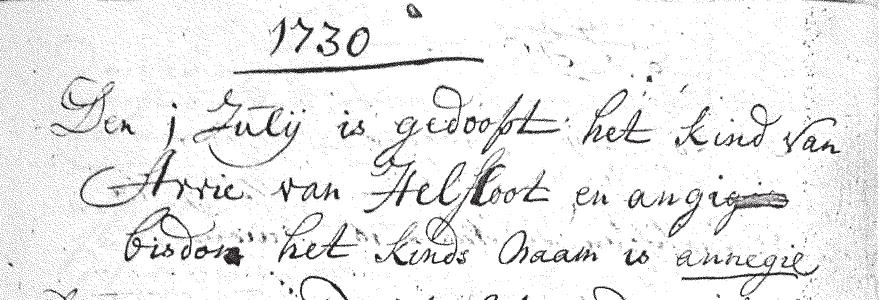 1730
Den j Julij is gedoopt het kind van
Arrie van Helsloot en angigie
bisdom het kinds Naam is annegie